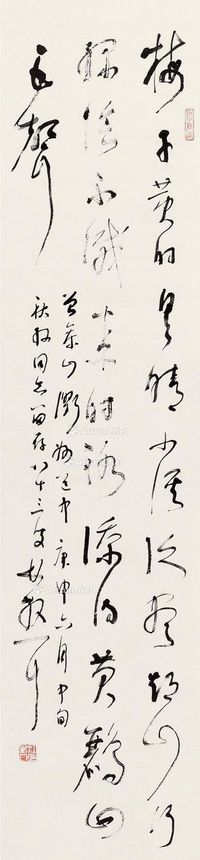 梅子黄时日日晴小溪泛尽却山行
绿阴不减来时路添得黄鹂四
五声
曾茶山衢州道中庚申六月中旬
同志留存八十三叟林散耳